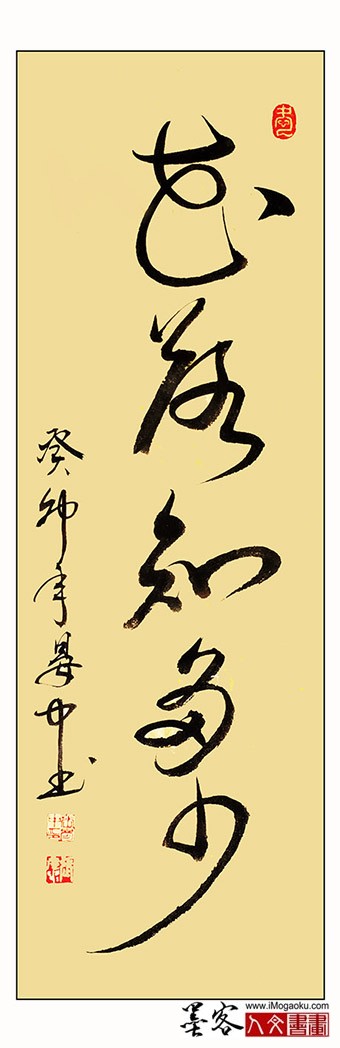 花落知多少
癸卯年晏中书
墨客
www.iMogaoku.com
人文書畫